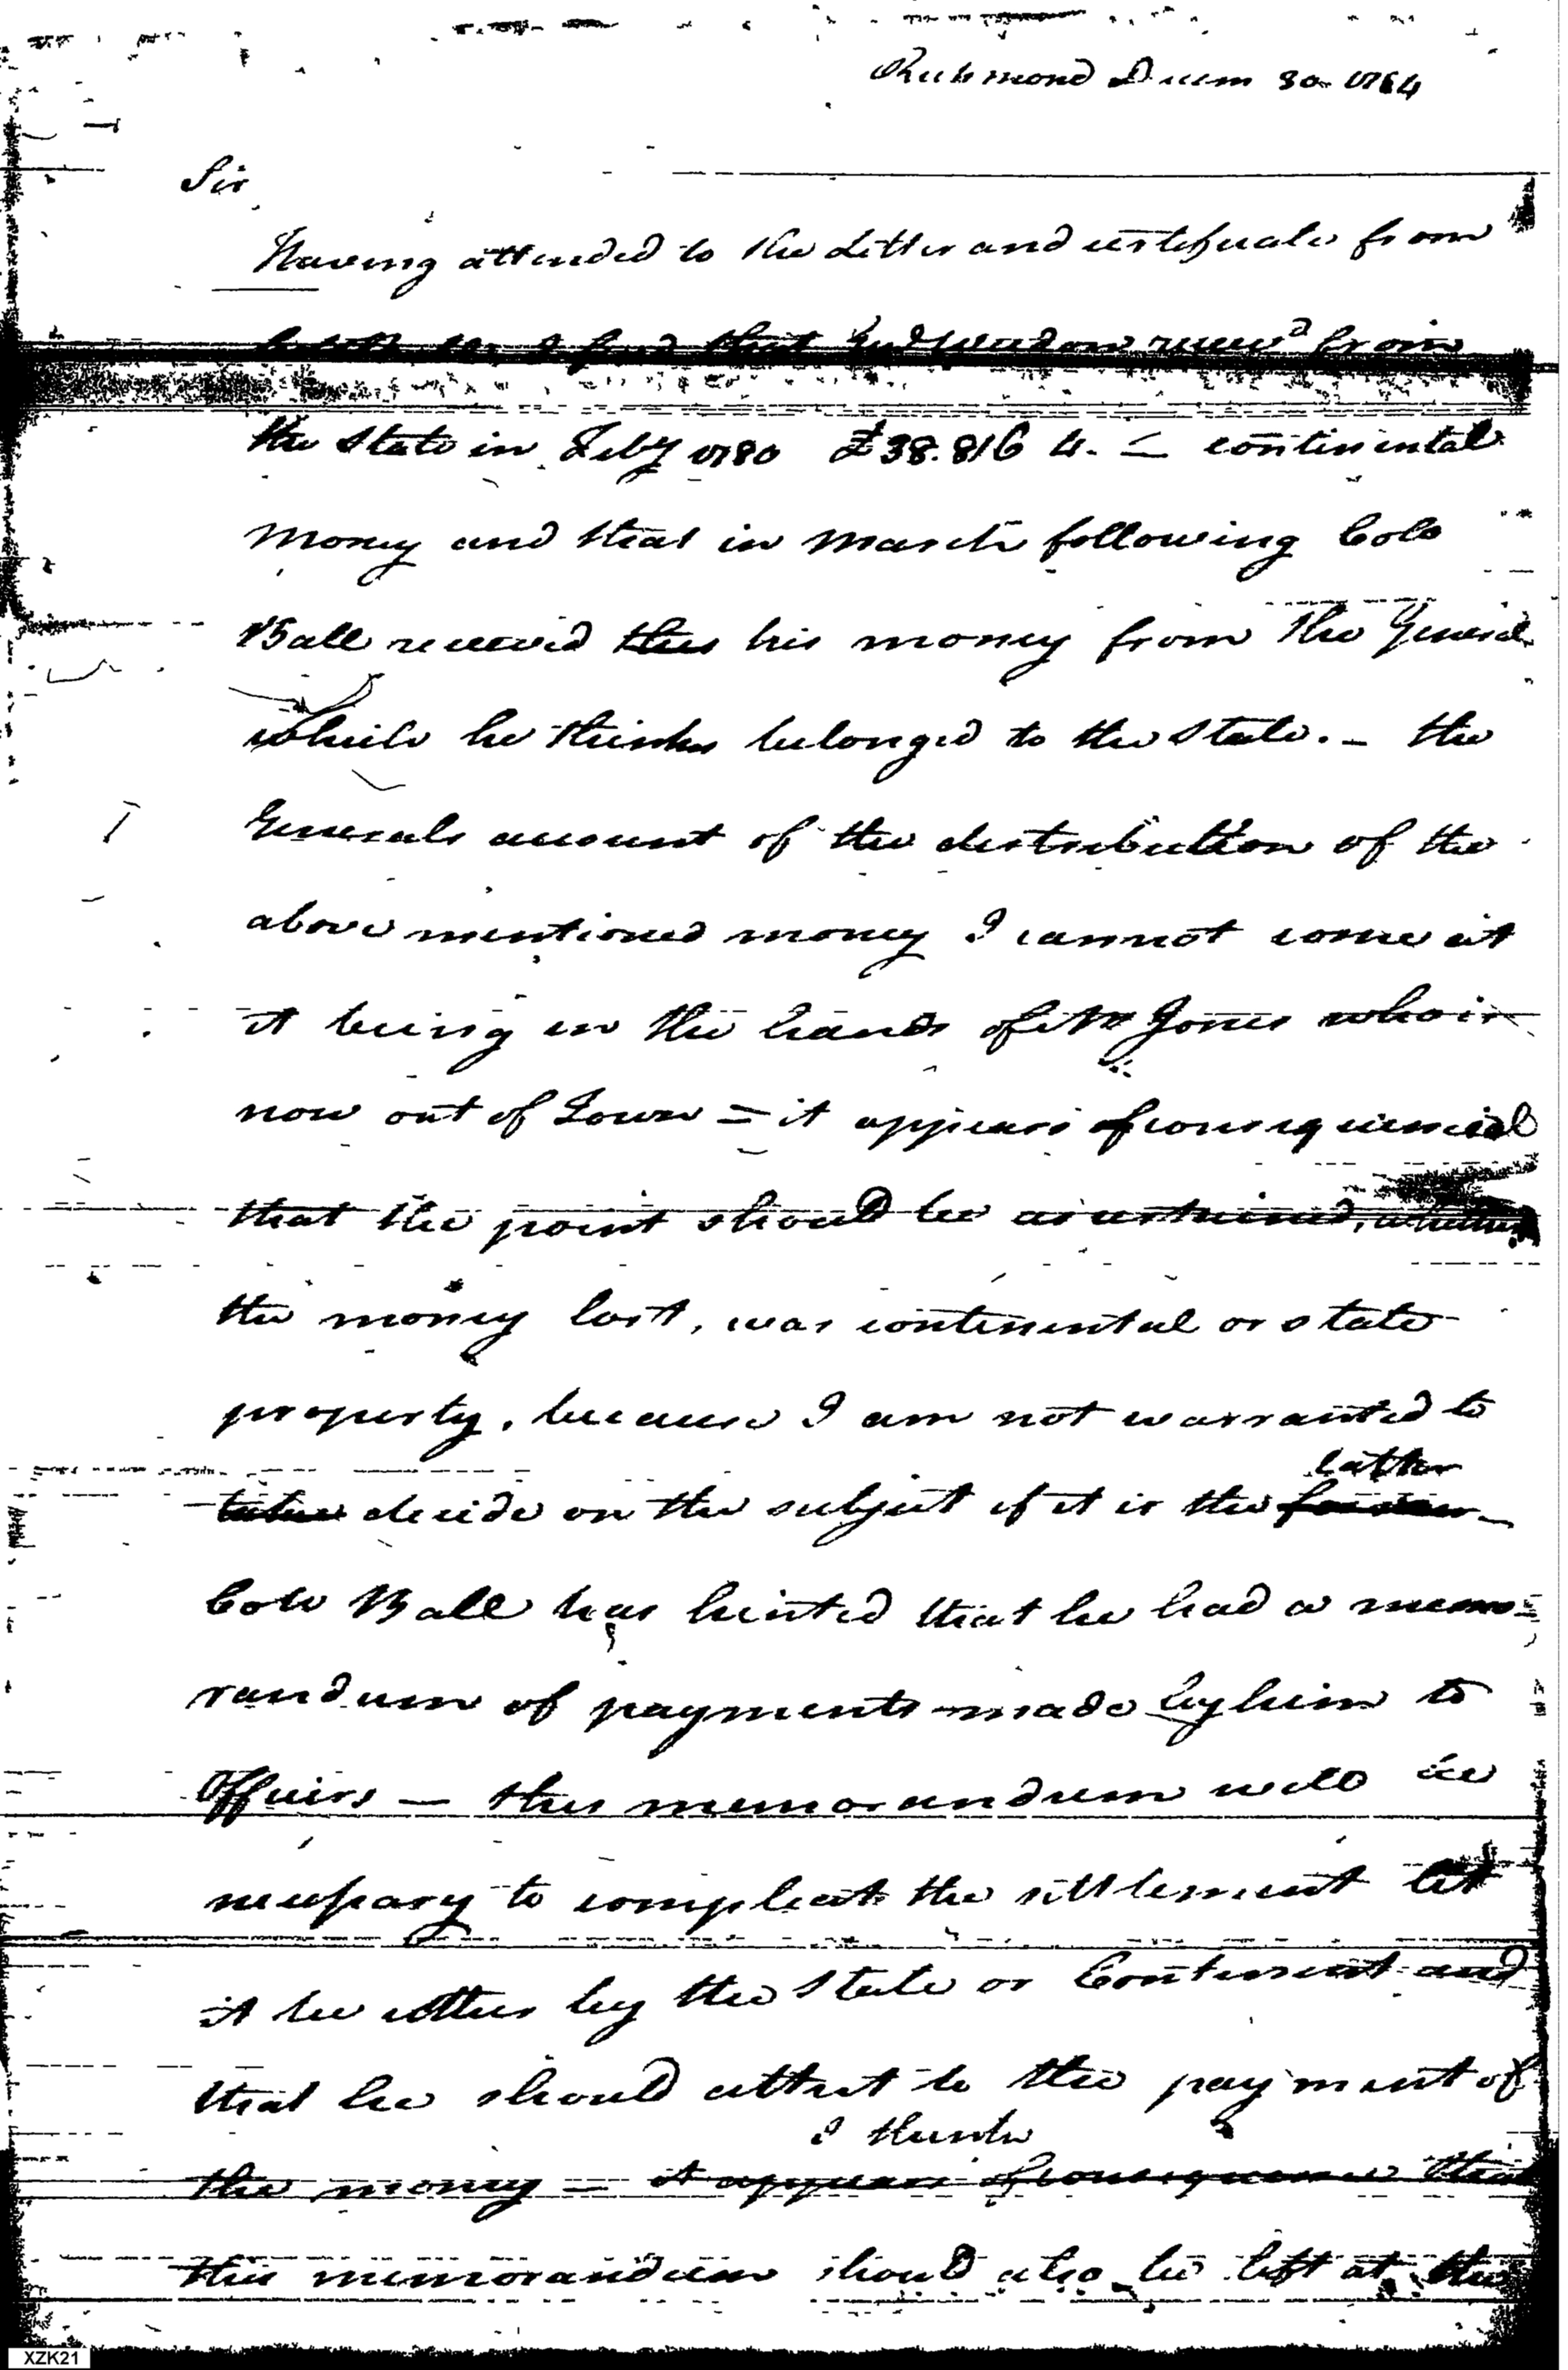 Richmond Decem 30. 1784
Sir
Having attended to the Letter and certificate from
I find that Genl Weedon receivd from
the State in Feby 1780 £38.816 4. – continental
Money and that in March following Colo
Ball received this his money from the General
which he thinks belonged to the State. – the
Generals account of the distribution of the
above mentioned money I cannot come at
it being in the hands of Mr Jones who is
now out of Town = it appears of consequence
that the point should be ascertained, whether
the money lost, was continental or state
property, because I am not warranted to
latter
decide on the subject if it is the former –
Colo Ball has hinted that he had a memo=
randum of payments made by him to
Officers — this memorandum will be
necessary to compleat the settlement let
it be either by the State or Continent and
that he should attest to the payment of
I think
the money = it appears of consequence that
this memorandum should also be left at the
XZK21